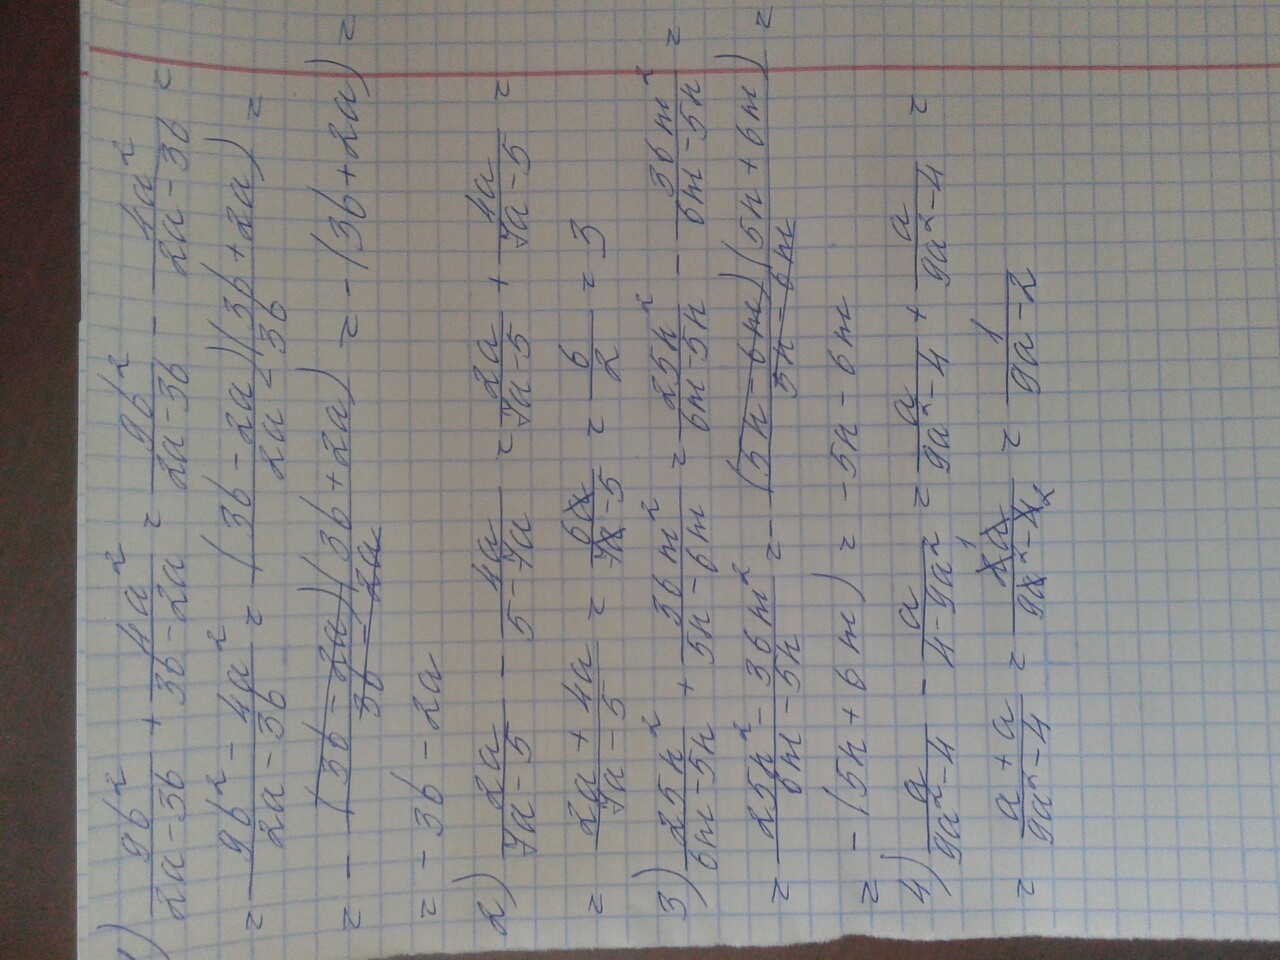 1) 9b²/(2a-3b) + 4a²/(3b-2a) = 9b²/(2a-3b) - 4a²/(2a-3b) =
= (9b²-4a²)/(2a-3b) = (3b-2a)(3b+2a)/(2a-3b) =
= - (3b-2a)(3b+2a)/(3b-2a) = -(3b+2a) =
= -3b-2a
2) 2a/(7a-5) - 4a/(5-7a) = 2a/(7a-5) + 4a/(7a-5) =
= (2a+4a)/(7a-5) = 6a/(7a-5) = 6/2 = 3
3) 25n²/(6m-5n) + 36m²/(5n-6m) = 25n²/(6m-5n) - 36m²/(6m-5n) =
= (25n²-36m²)/(6m-5n) = - (5n-6m)(5n+6m)/(5n-6m) =
= -(5n+6m) = -5n-6m
4) a/(9a²-4) - a/(4-9a²) = a/(9a²-4) + a/(9a²-4) =
= (a+a)/(9a²-4) = 2a/(9a²-4) = 1/(9a-2)